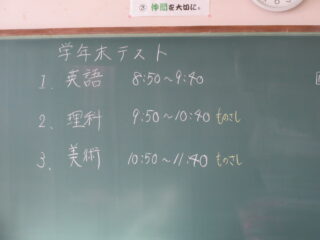 ③ 仲間を大切に。
学年末テスト
1. 英語 8:50~9:40
2. 理科 9:50~10:40 ものさし
3. 美術 10:50~11:40 ものさし